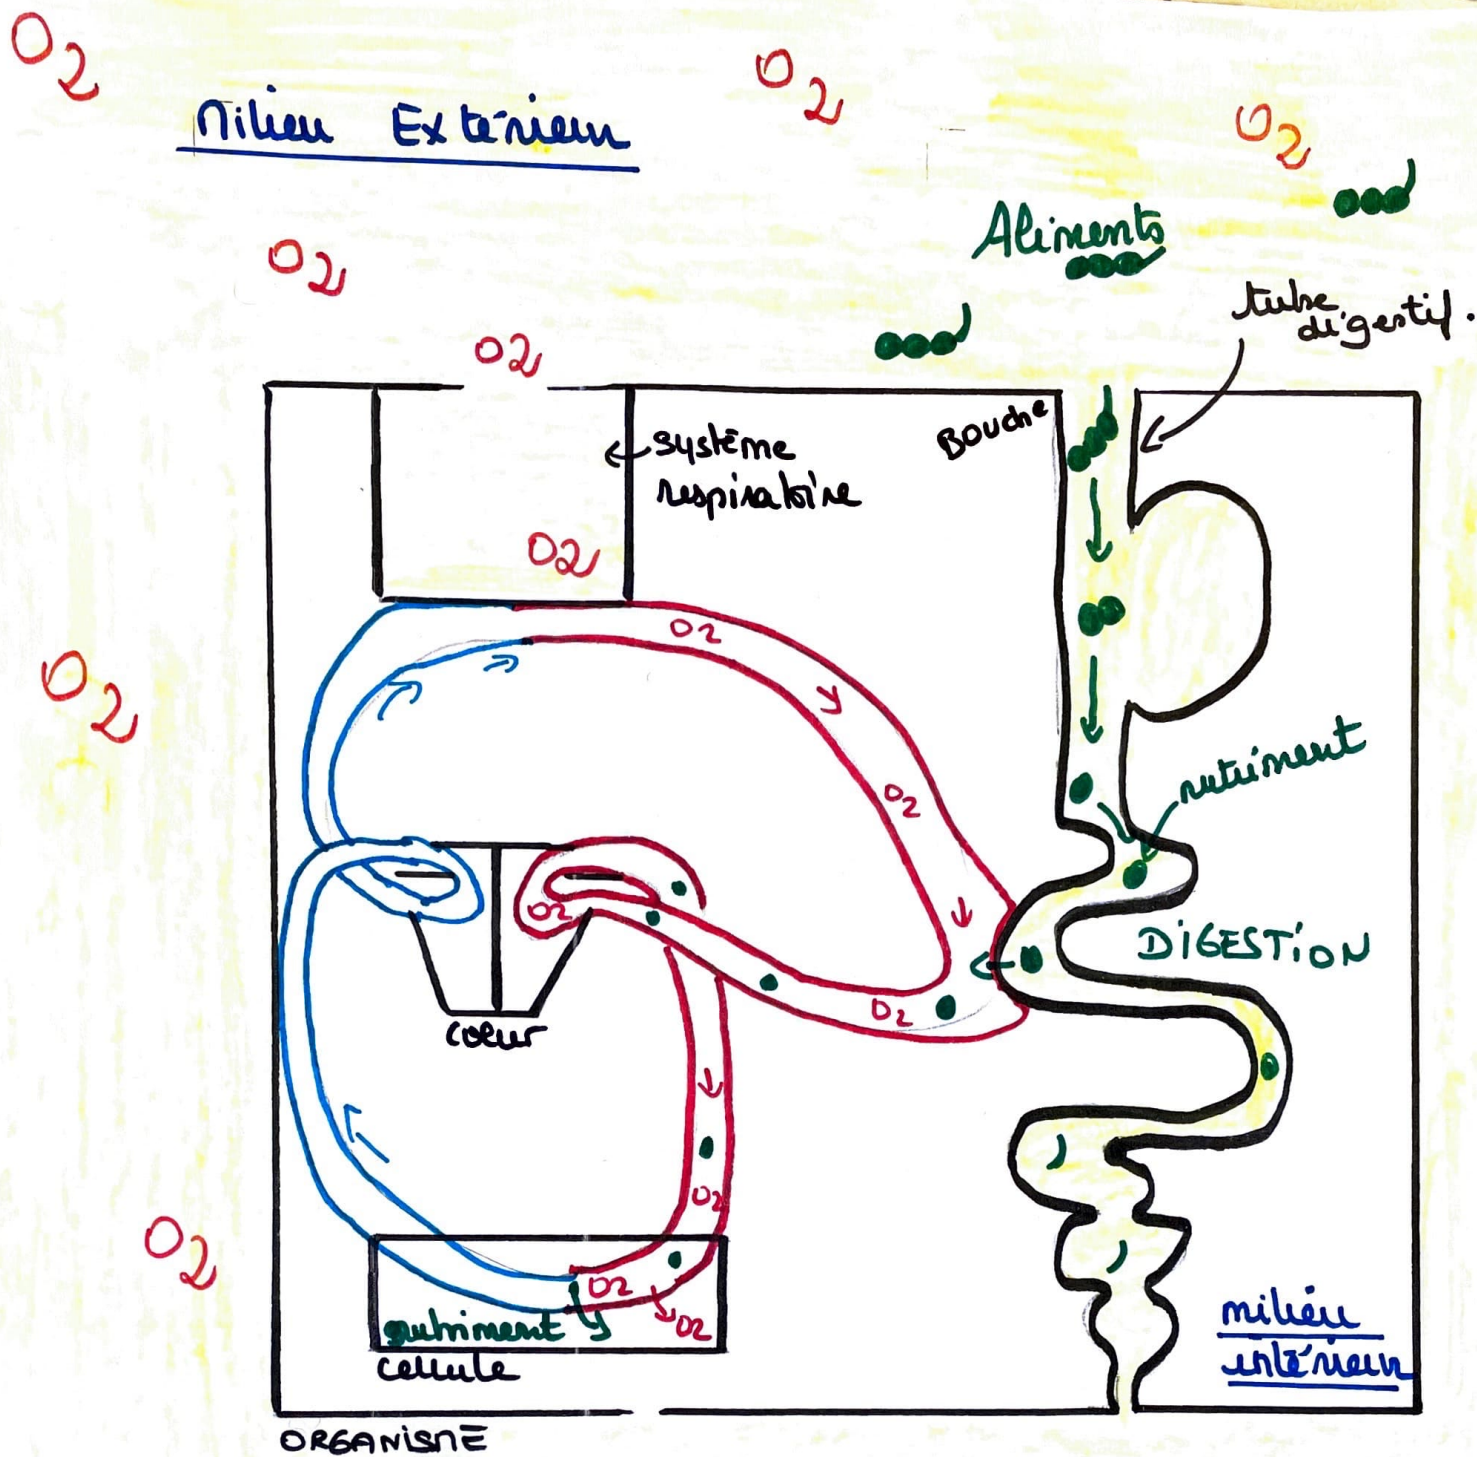 O2
O2
Milieu Extérieur
O2
Aliments
O2
tube
digestif.
O2
Bouche
système
respiratoire
O2
O2
O2
nutriment
O2
O2
DIGESTION
O2
coeur
O2
O2
O2
nutriment
O2
cellule
milieu
intérieur
ORGANISME